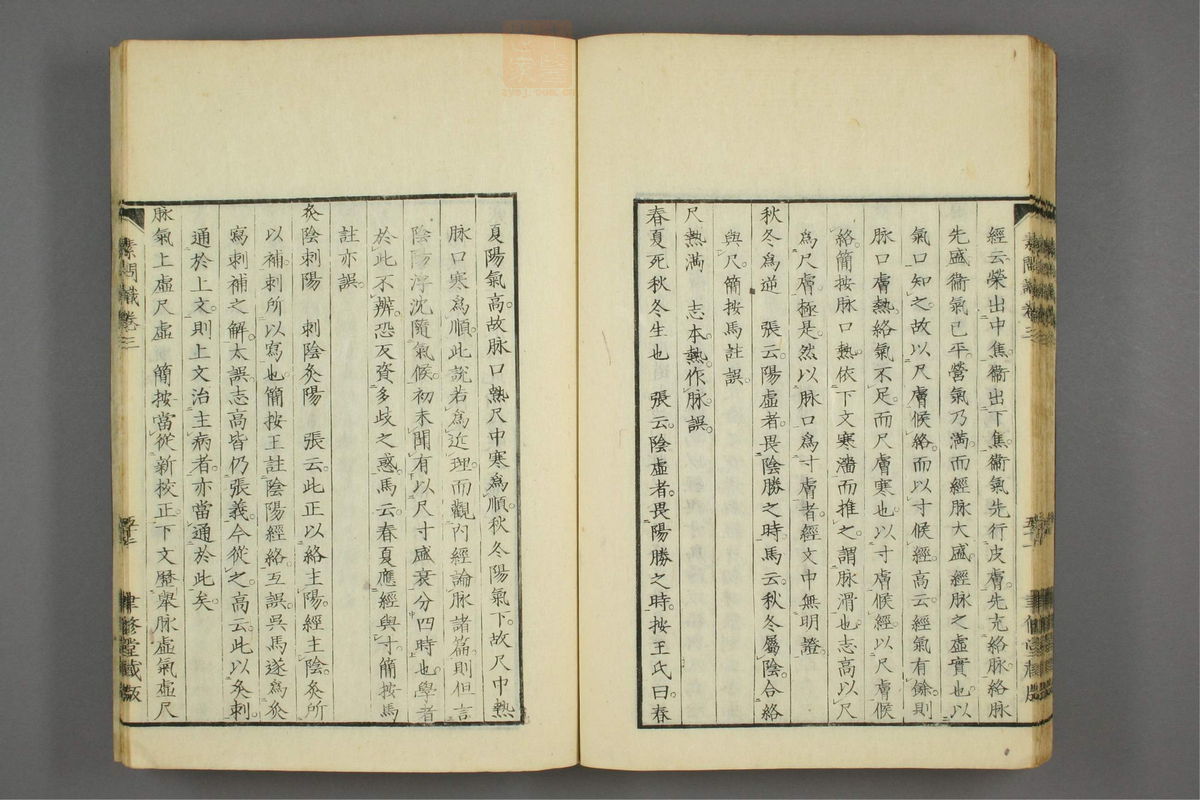 經云榮出中焦衞出下焦衞氣先行皮膚先充絡脉絡脉
先盛衞氣已平營氣乃満而經脉大盛經脉之虚實也以
氣口知之故以尺膚候絡而以寸候經高云經氣有餘則
脉口膚熱絡氣不足而尺膚寒也以寸膚候經以尺膚候
絡簡按脉口熱依下文寒濇而推之謂脉滑也志高以尺
爲尺膚極是然以脉口爲寸膚者經文中無明證
秋冬爲逆　張云陽虚者畏陰勝之時馬云秋冬屬陰合絡
與尺簡按馬註誤
尺熱満　志本熱作脉誤
春夏死秋冬生也　張云陰虚者畏陽勝之時按王氏曰春
夏陽氣高故脉口熱尺中寒爲順秋冬陽氣下故尺中熱
脉口寒爲順此説若爲近理而觀内經論脉諸篇則但言
陰陽浮沈隨氣候初未聞有以尺寸盛衰分四時也學者
於此不辨恐反資多歧之惑馬云春夏應經與寸簡按馬
註亦誤
灸陰刺陽　刺陰灸陽　張云此正以絡主陽經主陰灸所
以補刺所以寫也簡按王註陰陽經絡互誤呉馬遂爲灸
寫刺補之解太誤志高皆仍張義今從之高云此以灸刺
通於上文則上文治主病者亦當通於此矣
脉氣上虚尺虚　簡按當從新挍正下文歷舉脉虚氣虚尺
素問識卷三
聿修堂藏版